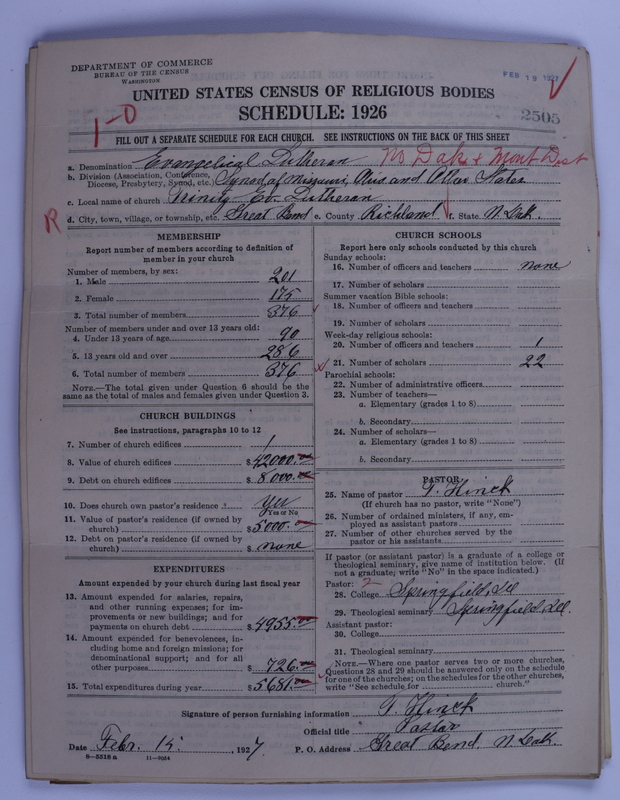 DEPARTMENT OF COMMERCE
BUREAU OF THE CENSUS
WASHINGTON
FEB 19 1927
UNITED STATES CENSUS OF RELIGIOUS BODIES
SCHEDULE: 1926
2505
1-0
FILL OUT A SEPARATE SCHEDULE FOR EACH CHURCH. SEE INSTRUCTIONS ON THE BACK OF THIS SHEET
a. Denomination Evangelical Lutheran No Dak & Mont Dist
b. Division (Association, Conference, Diocese, Presbytery, Synod, etc.) Synod of Missouri, Ohio and Other States
c. Local name of church Trinity Ev. Lutheran
R d. City, town, village, or township, etc. Great Bend e. County Richland f. State N. Dak.
MEMBERSHIP
Report number of members according to definition of
member in your church
Number of members, by sex:
1. Male 201
2. Female 175
3. Total number of members 376
Number of members under and over 13 years old:
4. Under 13 years of age 90
5. 13 years old and over 286
6. Total number of members 376
NOTE.—The total given under Question 6 should be the
same as the total of males and females given under Question 3.
CHURCH BUILDINGS
See instructions, paragraphs 10 to 12
7. Number of church edifices 1
8. Value of church edifices $ 42000.00
9. Debt on church edifices $ 8000.00
10. Does church own pastor's residence? Yes
Yes or No
11. Value of pastor's residence (if owned by
church) $ 5000.00
12. Debt on pastor's residence (if owned by
church) $ none
EXPENDITURES
Amount expended by your church during last fiscal year
13. Amount expended for salaries, repairs,
and other running expenses; for im-
provements or new buildings; and for
payments on church debt $ 4955.00
14. Amount expended for benevolences, in-
cluding home and foreign missions; for
denominational support; and for all
other purposes $ 726.00
15. Total expenditures during year $ 5681.00
CHURCH SCHOOLS
Report here only schools conducted by this church
Sunday schools:
16. Number of officers and teachers none
17. Number of scholars
Summer vacation Bible schools:
18. Number of officers and teachers
19. Number of scholars
Week-day religious schools:
20. Number of officers and teachers 1
21. Number of scholars 22
Parochial schools:
22. Number of administrative officers
23. Number of teachers—
a. Elementary (grades 1 to 8)
b. Secondary
24. Number of scholars—
a. Elementary (grades 1 to 8)
b. Secondary
PASTOR
25. Name of pastor T. Hinck
(If church has no pastor, write "None")
26. Number of ordained ministers, if any, em-
ployed as assistant pastors
27. Number of other churches served by the
pastor or his assistants
If pastor (or assistant pastor) is a graduate of a college or
theological seminary, give name of institution below. (If
not a graduate; write "No" in the space indicated.)
Pastor: 2
28. College Springfield, Ill
29. Theological seminary Springfield, Ill.
Assistant pastor:
30. College
31. Theological seminary
NOTE.—Where one pastor serves two or more churches,
Questions 28 and 29 should be answered only on the schedule
for one of the churches; on the schedules for the other churches,
write "See schedule for church."
Signature of person furnishing information T. Hinck
Official title Pastor
Date Febr. 15. 1927 P. O. Address Great Bend, N. Dak.
8—5518 a 11—9024